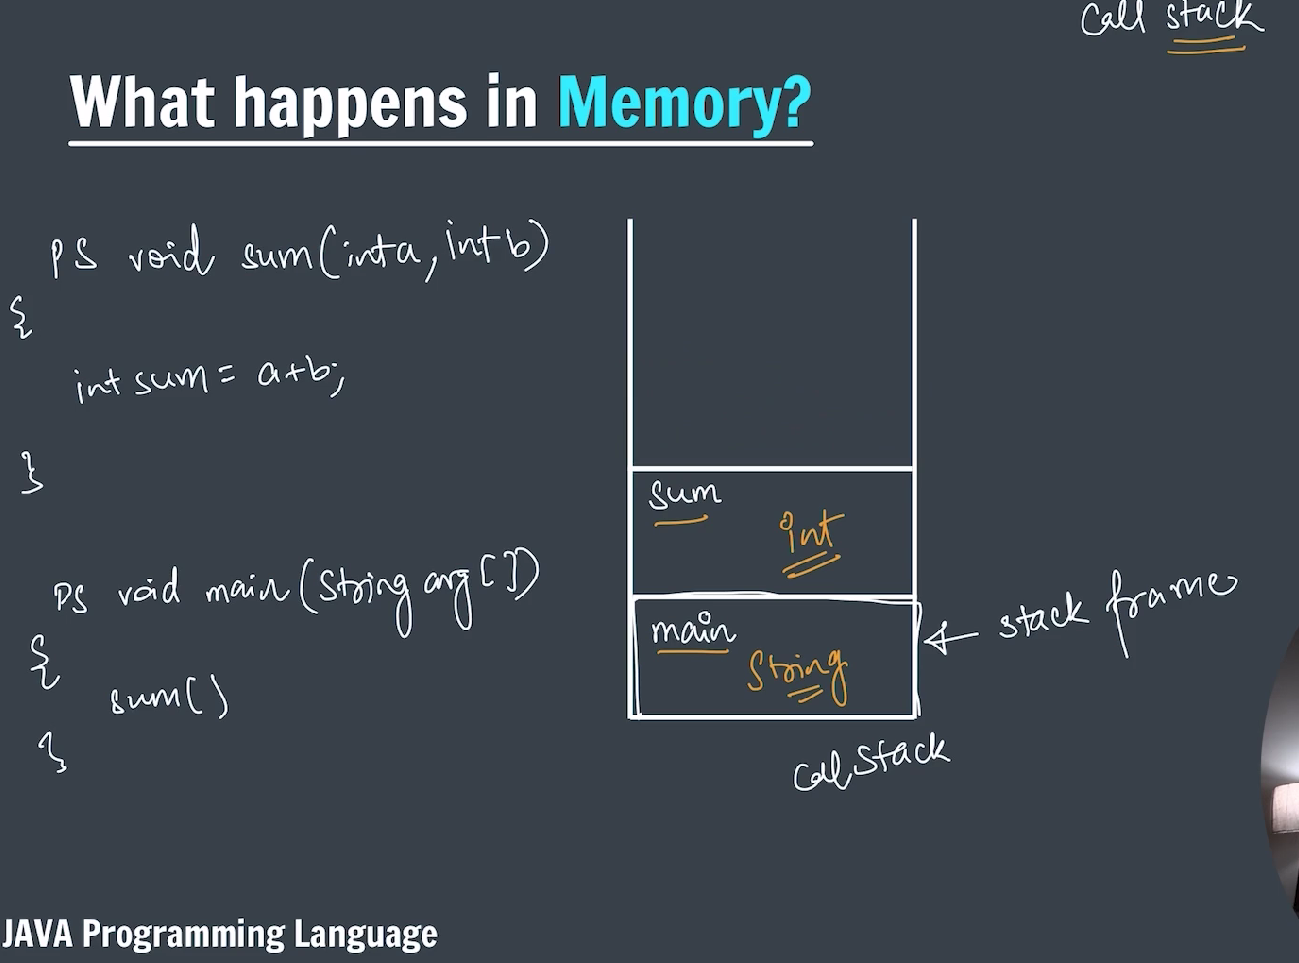 Call stack
What happens in Memory?
PS void sum(int a, int b)
{
int sum = a+b;
}
PS void main(String arg[])
{
sum()
}
sum
int
main
String
stack frame
Call Stack
JAVA Programming Language